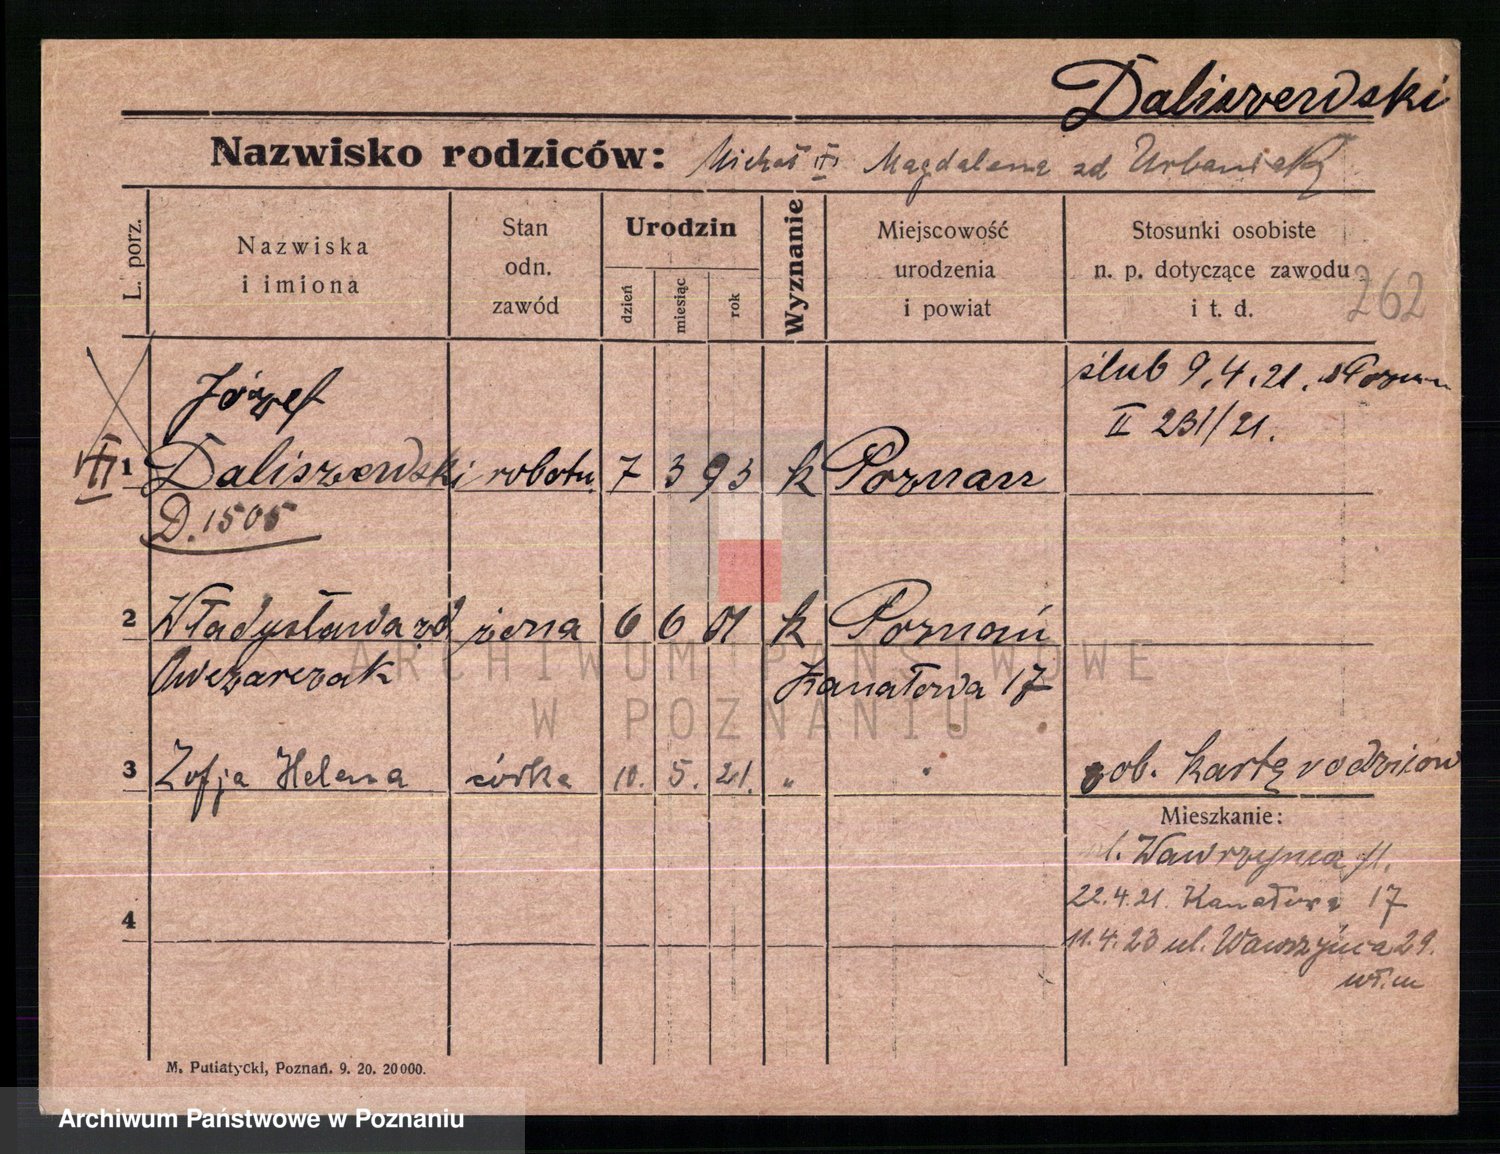 Daliszewski
Nazwisko rodziców: Michał Magdalena zd Urbaniak
L. porz.
Nazwiska
i imiona
Stan
odn.
zawód
Urodzin
dzień
miesiąc
rok
Wyznanie
Miejscowość
urodzenia
i powiat
Stosunki osobiste
n. p. dotyczące zawodu
i t. d.
262
Józef
ślub 9.4.21.
II 231/21.
1 Daliszewski robotn. 7 3 93 k Poznań
D.1505
2 Władysława zd żona 6 6 01 k Poznań
Owczarczak
Kanałowa 17
3 Zofja Helena córka 10. 5. 21. " "
zob. kartę rodziców
Mieszkanie:
ul. Wawrzyńca
22.4.21. Kanałowa 17
11.4.23 ul. Wawrzyńca 29.
4
M. Putiatycki, Poznań. 9. 20. 20000.
ARCHIWUM PAŃSTWOWE
W POZNANIU
Archiwum Państwowe w Poznaniu